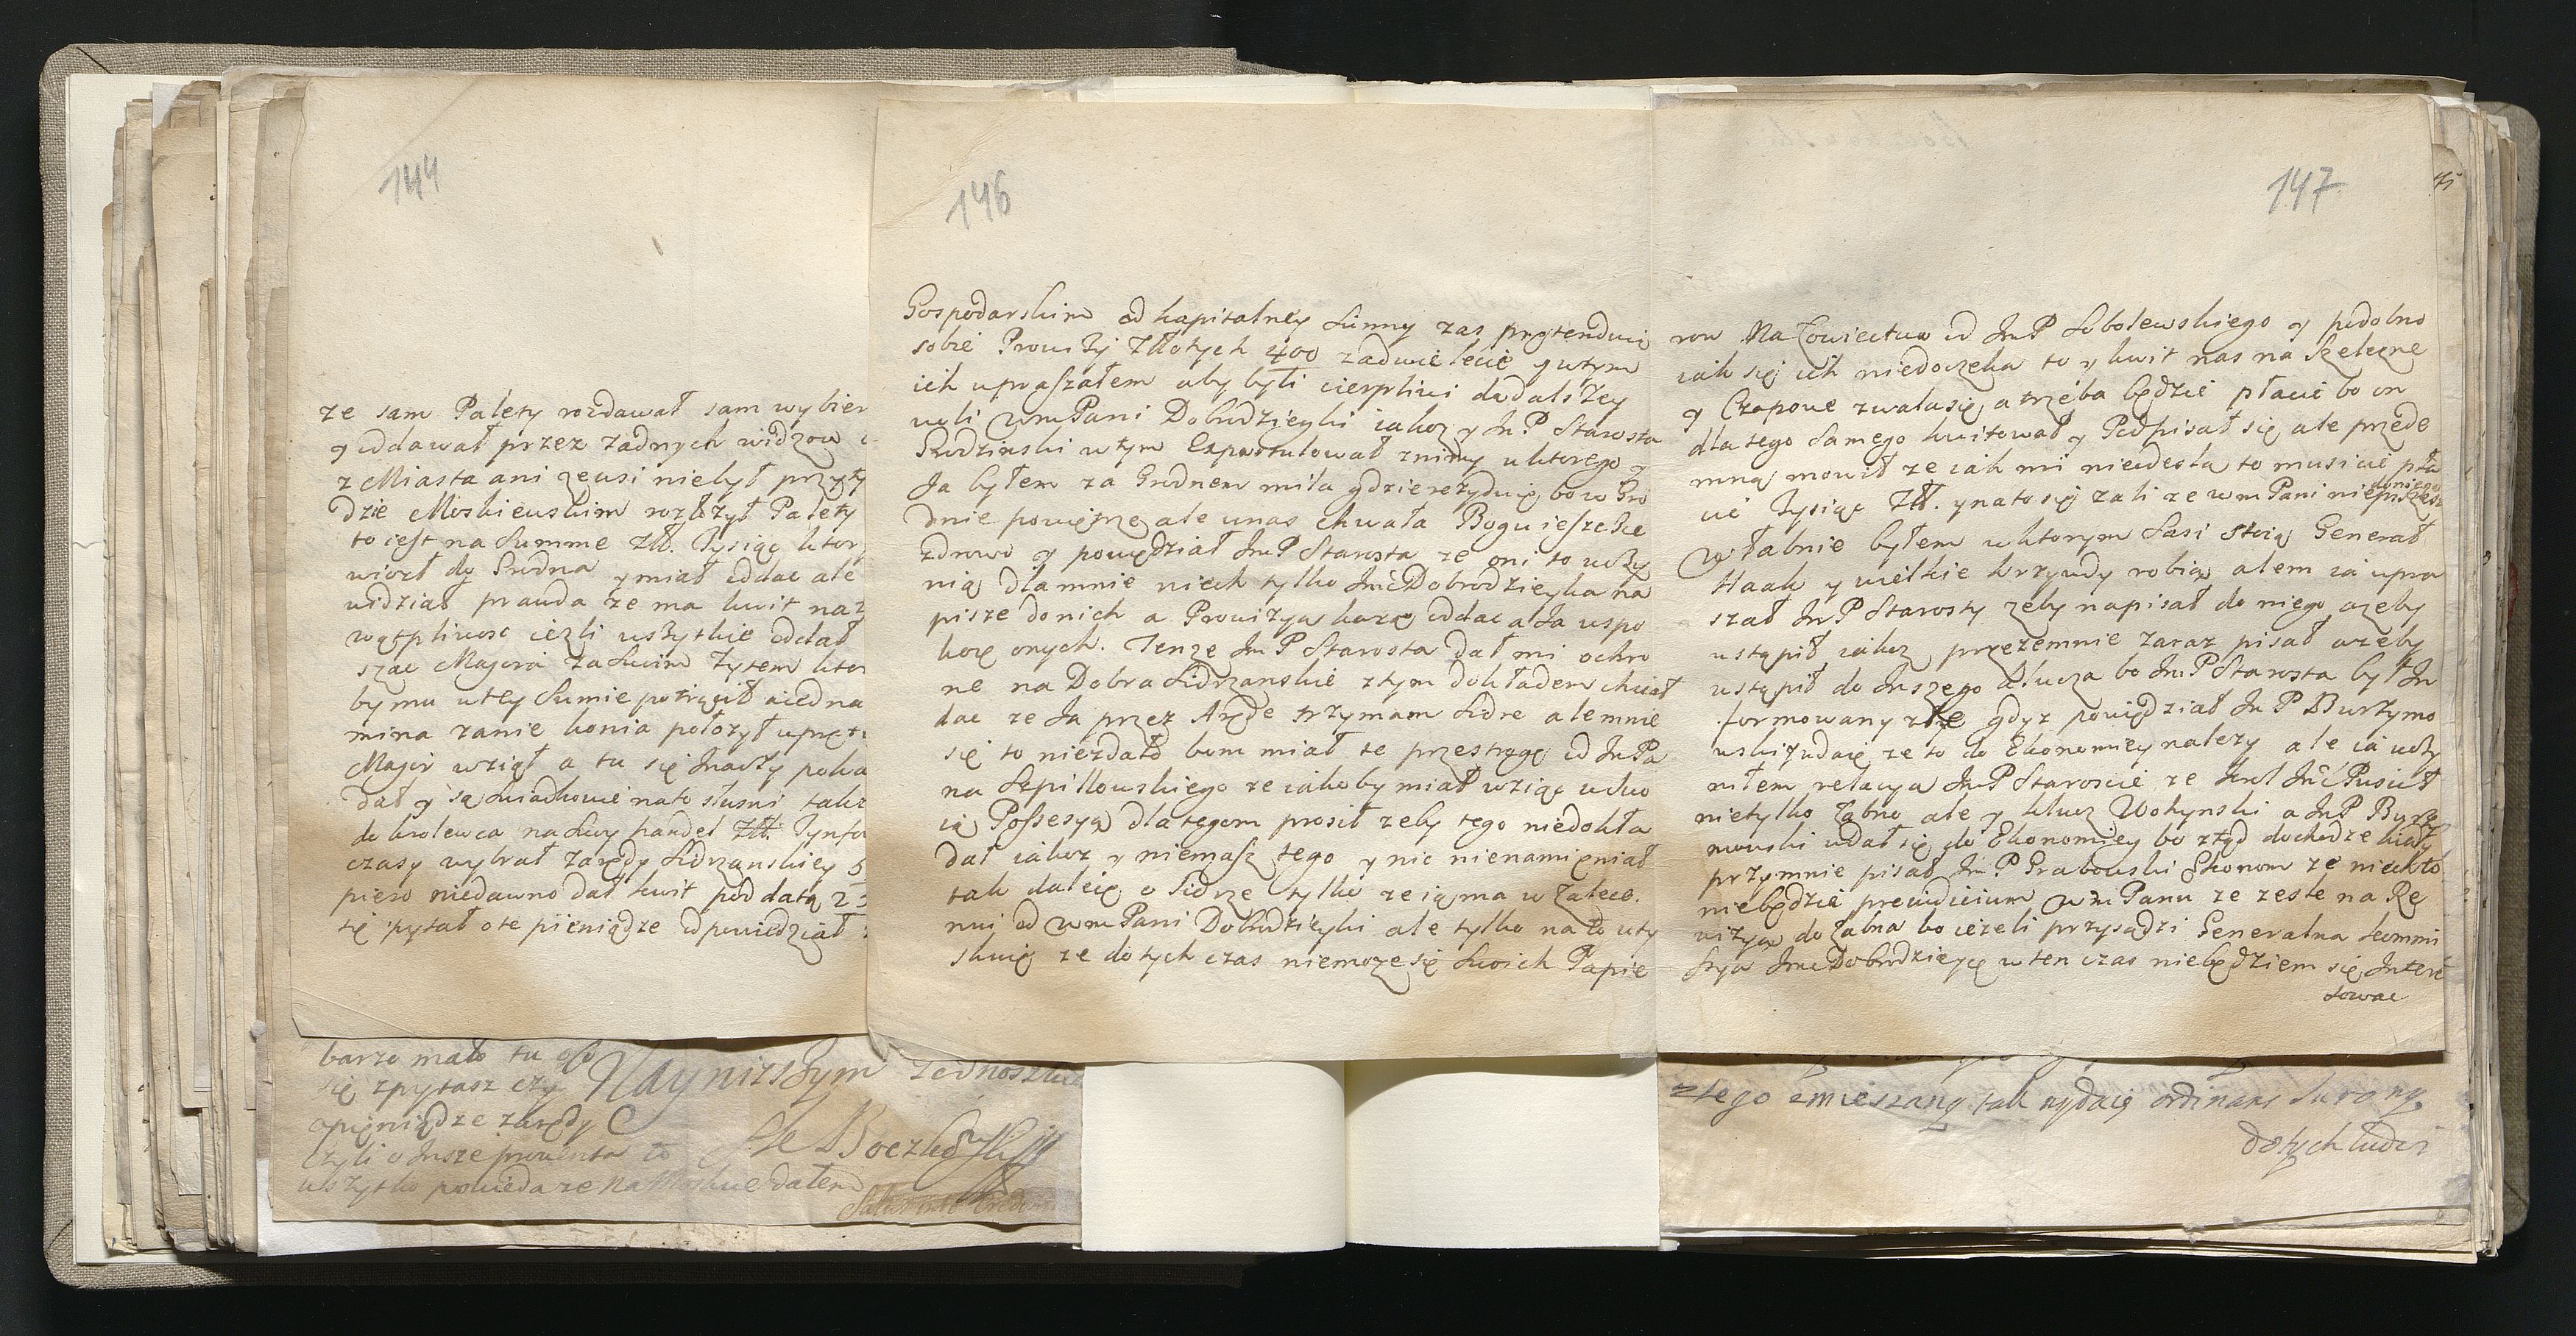 144
ze sam Palety rozdawał sam wybier
y oddawał przez zadnych widzow
z Miasta ani zewsi niebył przyty
dzie Moskiewskim rozłozył Palety
to iest na Summe Złł. Tysiąc ktor
wiozł do Grodna y miał oddac ale
widział prawda ze ma kwit na
wątpliwosc iezli wszytkie oddał
szac Majora za Swim Zytem ktor
by mu w tey Sumie potrącił a iedna
mina zanie konia połozył
Major wziął a tu się Inaczy poka
dał y są Swiadkowie nato słusni takz
do krolewca na Swoy handel Złł. Tynfo
czasy wybrał zarędy Sidrzanskiey 5
piero niedawno dał kwit pod datą 2
się pytał o te pieniądze odpowiedział
barzo mało tu
się zpytasz czy
o pieniądze zarędy
czyli o Insze prowenta to
wszytko powieda ze na Moskwe dałem
Nayniższym
146
Gospodarskim od kapitalney Summy zas prętenduią
sobie Prowizÿ Złłotych 400 zadwie lecie y wtym
ich upraszałem aby byli cierpliwi do dalszey
woli WmPani Dobrodzieyki iakoz y Jm̃P Starosta
Rodzinski wtym Expostulował znimy u ktorego y
Ja byłem za Grodnem mila gdzie rezyduię, bo w Gro
dnie powietrze ale unas chwała Bogu ieszcze
zdrowo y powiedział Jm̃P Starosta ze oni to uczy
nią dla mnie niech tylko Jmć Dobrodzieyka na
pisze do nich a Prowizyą kaze oddac a Ja uspo
koię onych. Tenze Jm̃P Starosta dał mi ochro
ne na Dobra Sidrzanskie ztym dokładem chciał
dac ze Ja przez Aręde trzymam Sidre ale mnie
się to niezdało bom miał te przestrogę od Jm̃Pa
na Szpilowskiego ze iakoby miał wziąc u dwo
ią Possesyą dla tegom prosił zeby tego niedokła
dał iakoz y niemasz tego y nic nienamieniał
tak daleię o Sidrze tylko ze ią ma w Zalece.
niu od WmPani Dobrodzieyki ale tylko na to uty
skuię ze do tych czas niemoze się Swoich Papie
147
row Na Łowiectwo od Jm̃P Sobolewskiego y podobno
iak się ich niedoczeka to y kwit nas na Szelęzne
y Czopowe zwala się a trzeba będzie płacic bo on
dla tego Samego kwitował y Podpisał się ale przede
mną mowił ze iak mi nieodesła to musicie pła
cic Tysiąc Złł. y nato się zali ze wm Pani nie
do niego
w Łabnie byłem w ktorym Sasi stoią Generał
Haak y wielkie krzywdy robią, alem ia upra
szał Jm̃P Starosty zeby napisał do niego azeby
ustąpił iakoz przezemnie zaraz pisał azeby
ustąpił do Inszego klucza bo Jm̃P Starosta był In
formowany zle gdyz powiedział Jm̃P Burzymo
wski y udaię ze to do Ekonomiey nalezy ale ia uczy
niłem relacya Jm̃P Staroscie ze Krol Jmć Puscił
nietylko Łabno ale y klucz Wokynski a Jm̃P Burzy
mowski udał się do Ekonomiey bo ztąd dochodze kiedy
przy mnie pisał Jm̃P Grabowski Ekonom ze niech to
niebędzie preiudicium wm Panu ze zesle na Re
wizyą do Łabna bo iezeli przysądzi Generalna kommi
ssya Jmć Dobrodzieyce w ten czas niebędziem się Intere
sowac
ztego zmieszany, tak wydaię ordinans Surowy
do tych ludzi